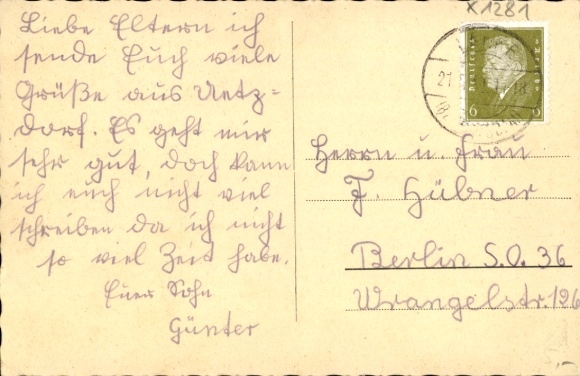 X1281
Liebe Eltern ich
sende Euch viele
Grüße aus Uetz=
dorf. Es geht mir
sehr gut, doch kann
ich euch nicht viel
schreiben da ich nicht
so viel Zeit habe.
Euer Sohn
Günter
DEUTSCHES REICH
6 6
21
18
Herrn u. Frau
F. Hübner
Berlin S.O. 36
Wrangelstr. 126